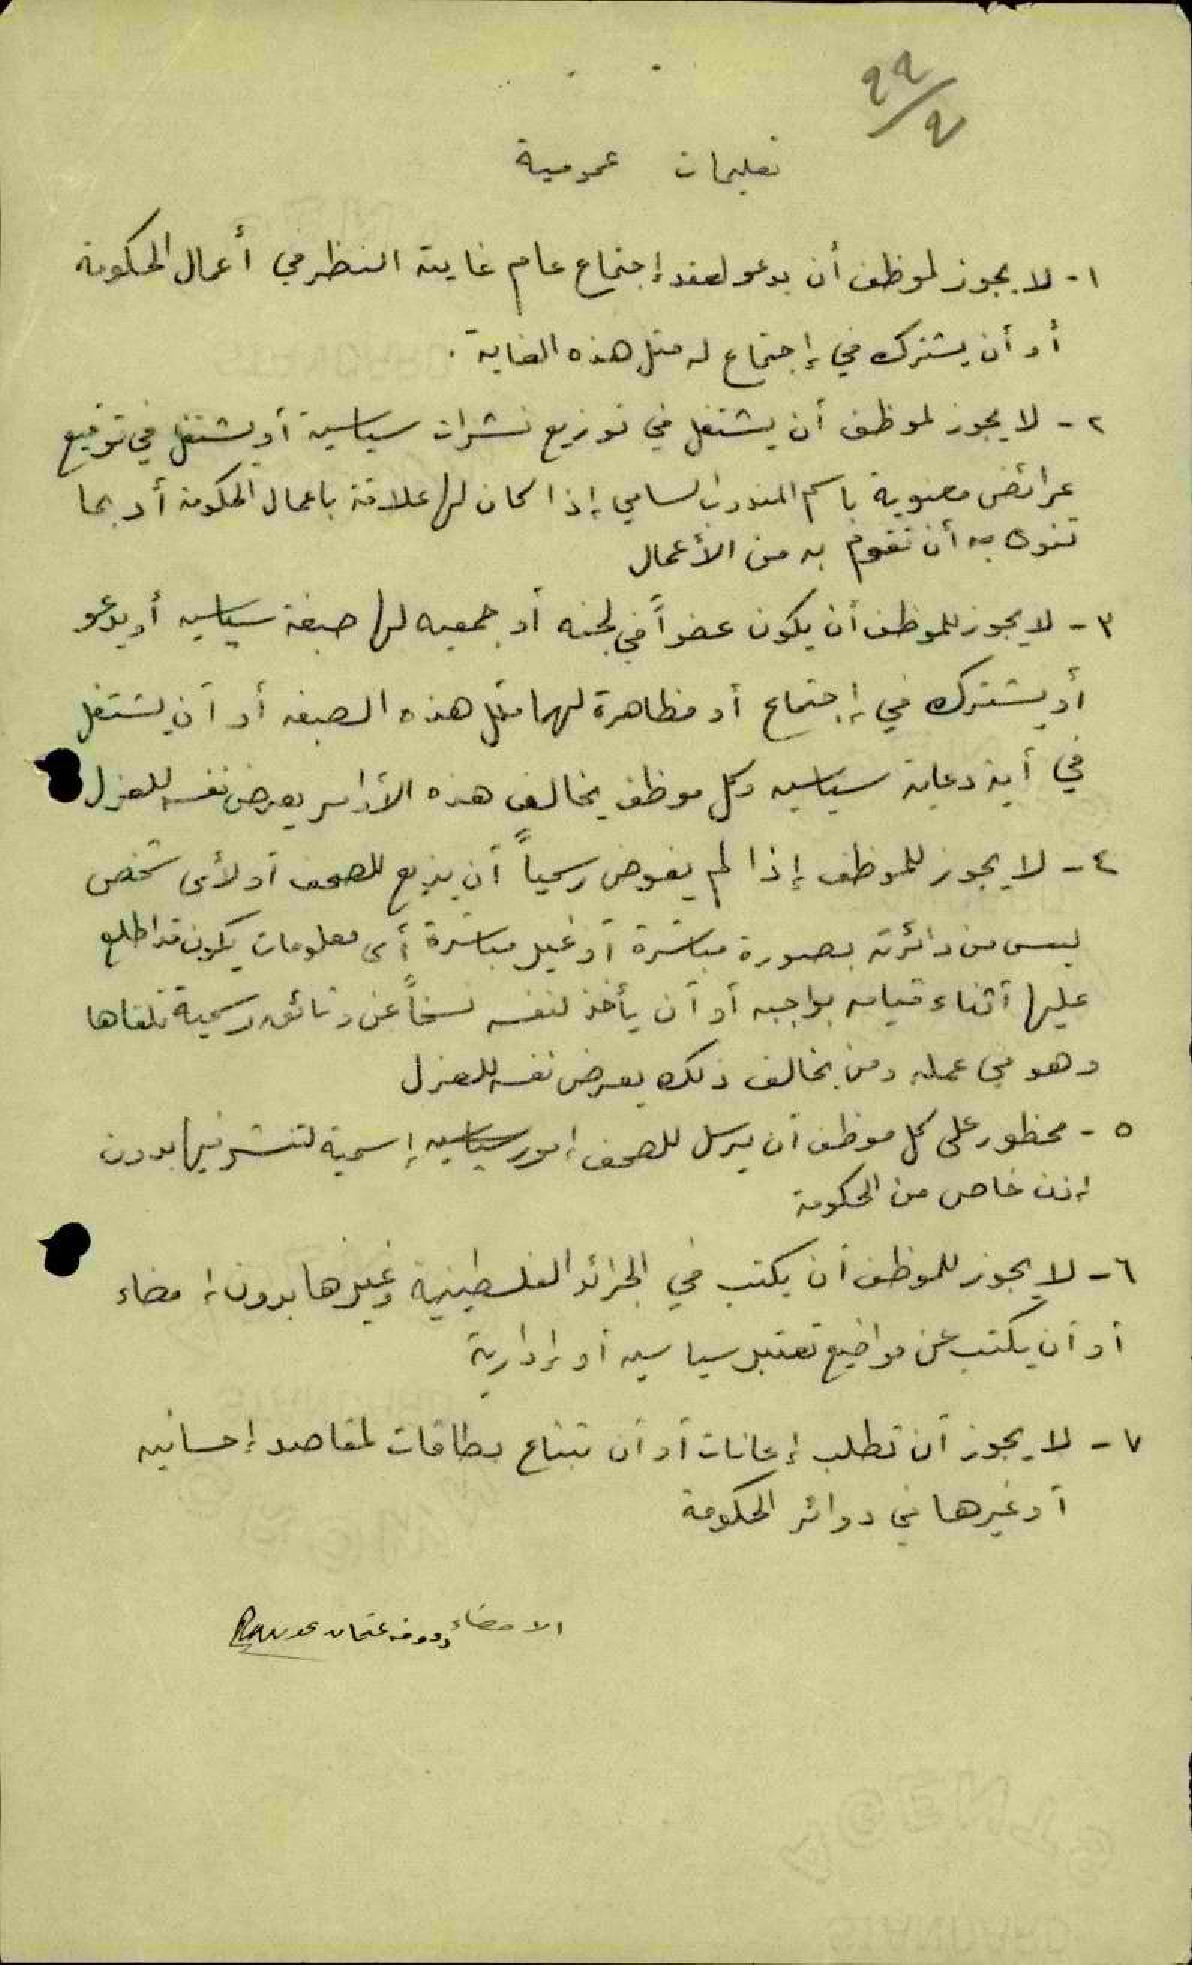 ٢٢/٩
تعليمات عمومية
١- لا يجوز لموظف أن يدعو لعقد إجتماع عام غايته النظر في أعمال الحكومة
أو أن يشترك في إجتماع له مثل هذه الغاية .
٢- لا يجوز لموظف أن يشتغل في توزيع نشرات سياسية أو يشتغل في توقيع
عرائض معنوية باسم المندوب السامي إذا كان لها علاقة باعمال الحكومة أو بما
تنوي أن تقوم به من الأعمال
٣- لا يجوز للموظف أن يكون عضواً في لجنه أو جمعيه لها صبغة سياسيه أو يدعو
أو يشترك في إجتماع أو مظاهرة لهما مثل هذه الصبغه أو أن يشتغل
في أية دعاية سياسيه وكل موظف يخالف هذه الأوامر يعرض نفسه للعزل
٤- لا يجوز للموظف إذا لم يفوض رسمياً أن يذيع للصحف أو لأى شخص
ليس من دائرته بصورة مباشرة أو غير مباشرة أى معلومات يكون قد اطلع
عليها أثناء قيامه بواجبه أو أن يأخذ لنفسه نسخاً عن وثائق رسمية تلقاها
وهو في عمله ومن يخالف ذلك يعرض نفسه للعزل
٥- محظور على كل موظف أن يرسل للصحف امور سياسيه إسمية لتنشر فيها بدون
اذن خاص من الحكومة
٦- لا يجوز للموظف أن يكتب في الجرائد الفلسطينية وغيرها بدون امضاء
أو أن يكتب عن مواضيع تعتبر سياسيه أو إدارية
٧- لا يجوز أن تطلب إعانات أو أن تبتاع بطاقات لمقاصد إحسانيه
أو غيرها في دوائر الحكومة
الامضاء رووف عثمان